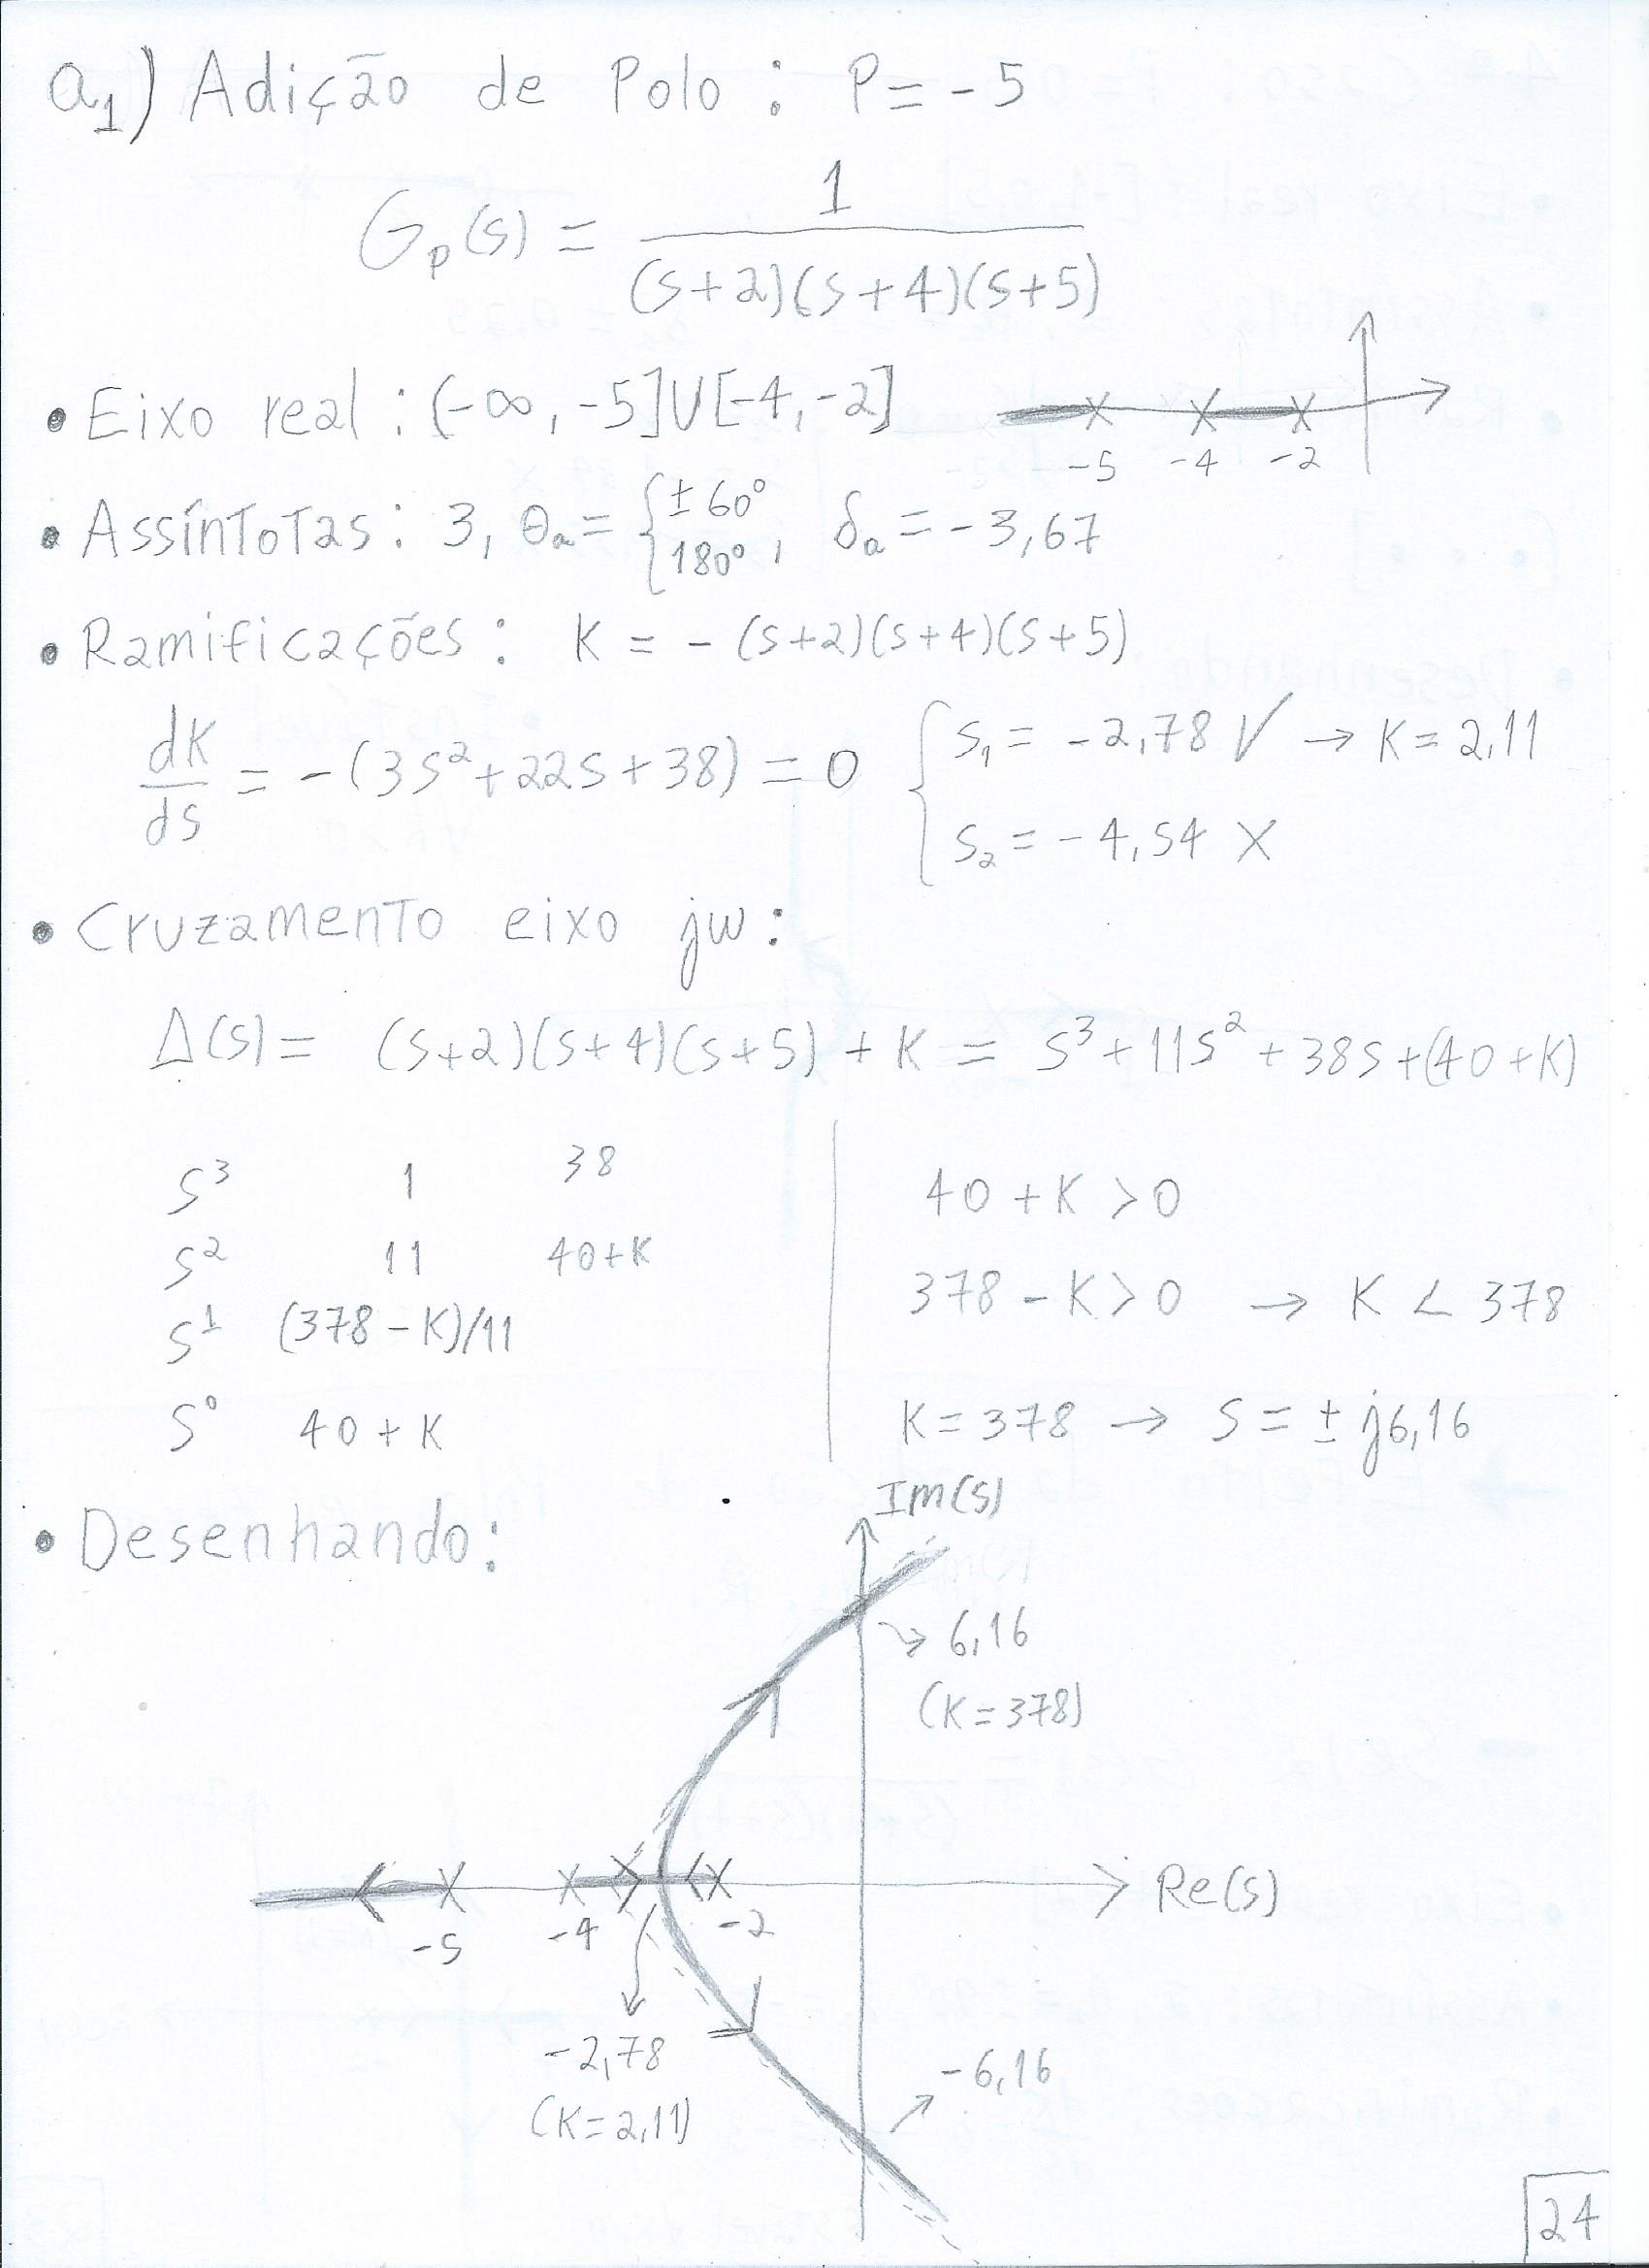 a₁) Adição de Polo : P = -5
Gp(s) = 1 / (s+2)(s+4)(s+5)
• Eixo real : (-∞, -5]U[-4, -2]
-5 -4 -2
• Assíntotas: 3, θa = { ±60° 180° , δa = -3,67
• Ramificações: K = - (s+2)(s+4)(s+5)
dK/ds = -(3s²+22s+38) = 0 { s₁ = -2,78 √ → K = 2,11
s₂ = -4,54 X
• Cruzamento eixo jw :
Δ(s) = (s+2)(s+4)(s+5) + K = s³+11s²+38s+(40+K)
s³ 1 38
s² 11 40+K
s¹ (378-K)/11
s⁰ 40+K
40 + K > 0
378 - K > 0 → K < 378
K = 378 → s = ± j6,16
• Desenhando:
Im(s)
6,16
(K=378)
Re(s)
-5 -4 -2
-2,78
(K=2,11)
-6,16
24